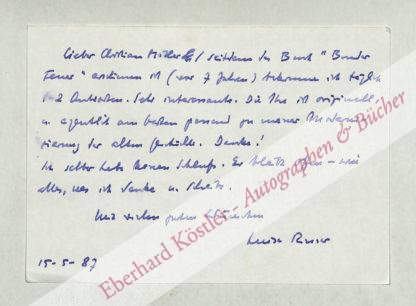 Lieber Christian Müller / seitdem das Buch "Bruder
Feuer" erschienen ist (vor 7 Jahren) bekomme ich täglich
1-2 Antworten. Sehr interessante. Die Ihre ist originell,
u. eigentlich am besten passend zu meiner Moderni-
sierung der alten Geschichte. Danke!
Ich selber habe keinen Schluß. Er bleibt offen - wie
alles, was ich denke u. schreibe.
Mit vielen guten Wünschen
Luise Rinser
15-5-87
Eberhard Köstler - Autographen & Bücher